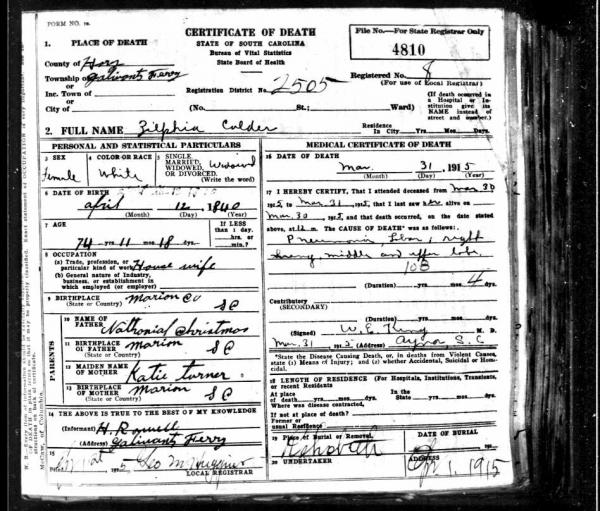 FORM NO. 
CERTIFICATE OF DEATH
STATE OF SOUTH CAROLINA
Bureau of Vital Statistics
State Board of Health
File No.—For State Registrar Only
4810
1. PLACE OF DEATH
County of Horry
Township of Galivants Ferry
or
Inc. Town of
or
City of
Registration District No. 2505
Registered No. 8
(For use of Local Registrar)
(No. St.; Ward)
(If death occurred in a Hospital or Institution give its NAME instead of street and number.)
2. FULL NAME Zilphia Calder
Residence In City Yrs. Mos. Days.
PERSONAL AND STATISTICAL PARTICULARS
3 SEX
Female
4 COLOR OR RACE
White
5 SINGLE, MARRIED, WIDOWED, OR DIVORCED. (Write the word)
Widowed
6 DATE OF BIRTH
April 12, 1840
(Month) (Day) (Year)
7 AGE
74 yrs. 11 mos. 18 ds.
If LESS than 1 day, hrs. or min.?
8 OCCUPATION
(a) Trade, profession, or particular kind of work House wife
(b) General nature of Industry, business, or establishment in which employed (or employer)
9 BIRTHPLACE
(State or Country)
Marion Co S C
PARENTS
10 NAME OF FATHER
Nathonial Christmas
11 BIRTHPLACE OF FATHER
(State or Country)
Marion S C
12 MAIDEN NAME OF MOTHER
Katie Turner
13 BIRTHPLACE OF MOTHER
(State or Country)
Marion S C
14 THE ABOVE IS TRUE TO THE BEST OF MY KNOWLEDGE
(Informant) H. Rowell
(Address) Galivants Ferry
15
191 5 Geo M Huggins
LOCAL REGISTRAR
MEDICAL CERTIFICATE OF DEATH
16 DATE OF DEATH
Mar. 31, 1915
(Month) (Day) (Year)
17 I HEREBY CERTIFY, That I attended deceased from Mar 30
1915, to Mar. 31, 1915, that I last saw her alive on
Mar. 30, 1915, and that death occurred, on the date stated
above, at 12 m. The CAUSE OF DEATH* was as follows:
Pneumonia Lobar; right
middle and upper lobe
108
(Duration) yrs. mos. 4 ds.
Contributory
(SECONDARY)
(Duration) yrs. mos. ds.
(Signed) W. E. King M. D.
Mar. 31, 1915 (Address) Aynor S. C
*State the Disease Causing Death, or, in deaths from Violent Causes, state (1) Means of Injury; and (2) whether Accidental, Suicidal or Homicidal.
18 LENGTH OF RESIDENCE (For Hospitals, Institutions, Transients, or recent Residents
At place of death yrs. mos. ds. In the State yrs. mos. ds.
Where was disease contracted,
If not at place of death?
Former or usual Residence
19 Place of Burial or Removal.
Rehobeth
DATE OF BURIAL
Ap. 1, 1915
20 UNDERTAKER
ADDRESS